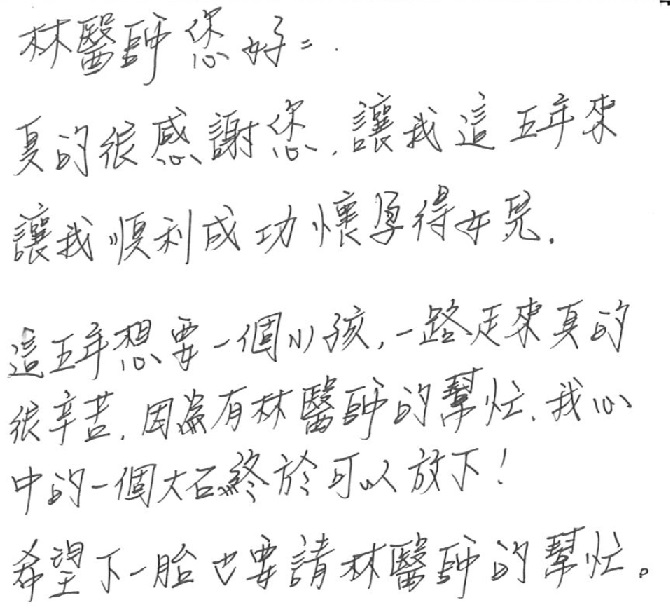 林醫師您好：
真的很感謝您，讓我這五年來
讓我順利成功懷孕得女兒。
這五年想要一個小孩，一路走來真的
很辛苦，因為有林醫師的幫忙，我心
中的一個大石終於可以放下！
希望下一胎也要請林醫師的幫忙。